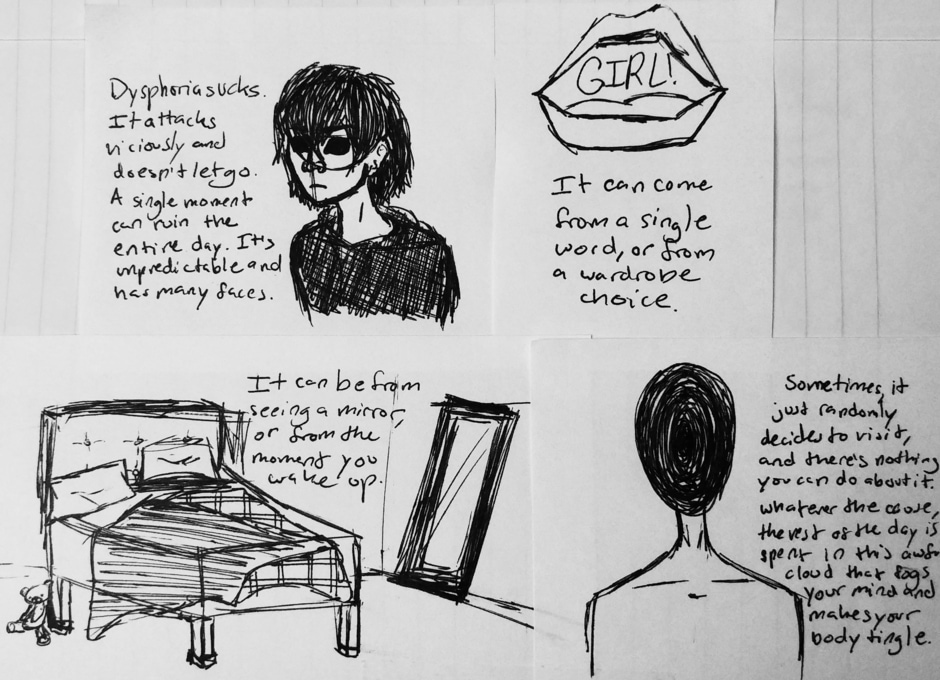 Dysphoria sucks.
It attacks
viciously and
doesn't let go.
A single moment
can ruin the
entire day. It's
unpredictable and
has many faces.
GIRL!
It can come
from a single
word, or from
a wardrobe
choice.
It can be from
seeing a mirror,
or from the
moment you
wake up.
Sometimes, it
just randomly
decides to visit,
and there's nothing
you can do about it.
whatever the cause,
the rest of the day is
spent in this awful
cloud that fogs
your mind and
makes your
body tingle.